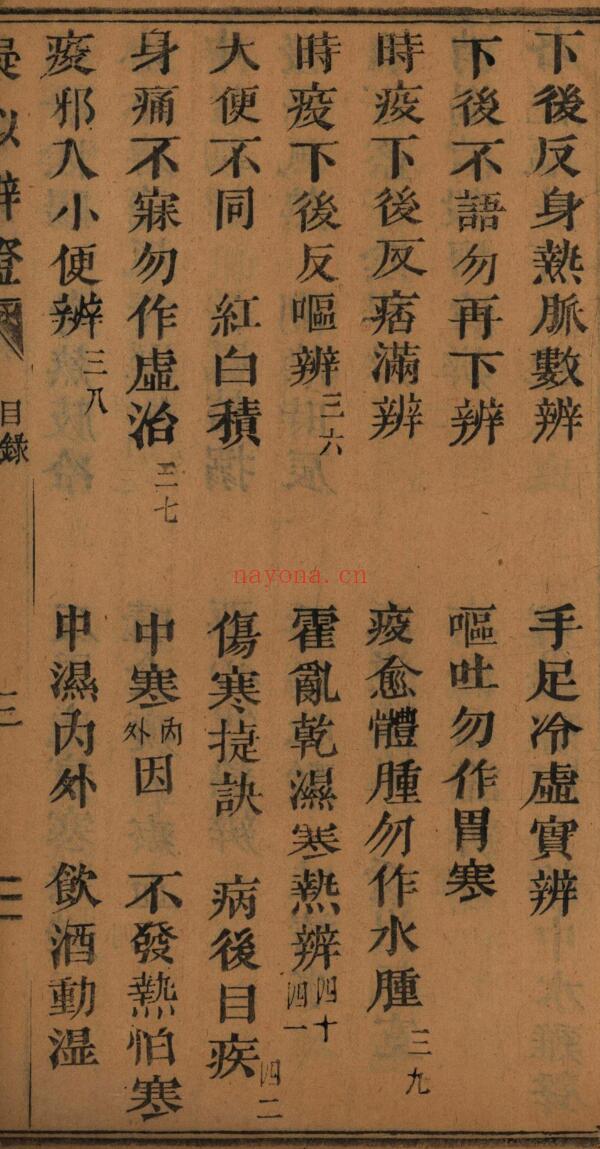 下後反身熱脈數辨 手足冷虛實辨
下後不語勿再下辨 嘔吐勿作胃寒
時疫下後反痞滿辨 疫愈體腫勿作水腫 三九
時疫下後反嘔辨 三六 霍亂乾濕寒熱辨 四十 四一
大便不同 紅白積 傷寒㨗訣 病後目疾 四二
身痛不寐勿作虛治 三七 中寒內外因 不發熱怕寒
疫邪入小便辨 三八 中濕內外 飲酒動湿
疑似辨證 目錄 二
nayona.cn